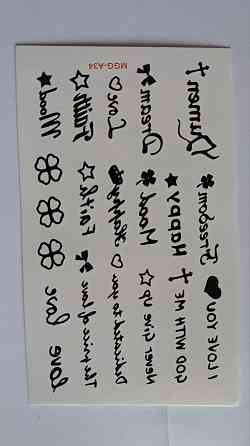 MGG-A34
Mood
Love Love
Faith
Faith
The price of love
Love
to you
Dream
Mood
Never Give up
Happy
GOD WITH ME
Summer
Freedom
I LOVE YOU